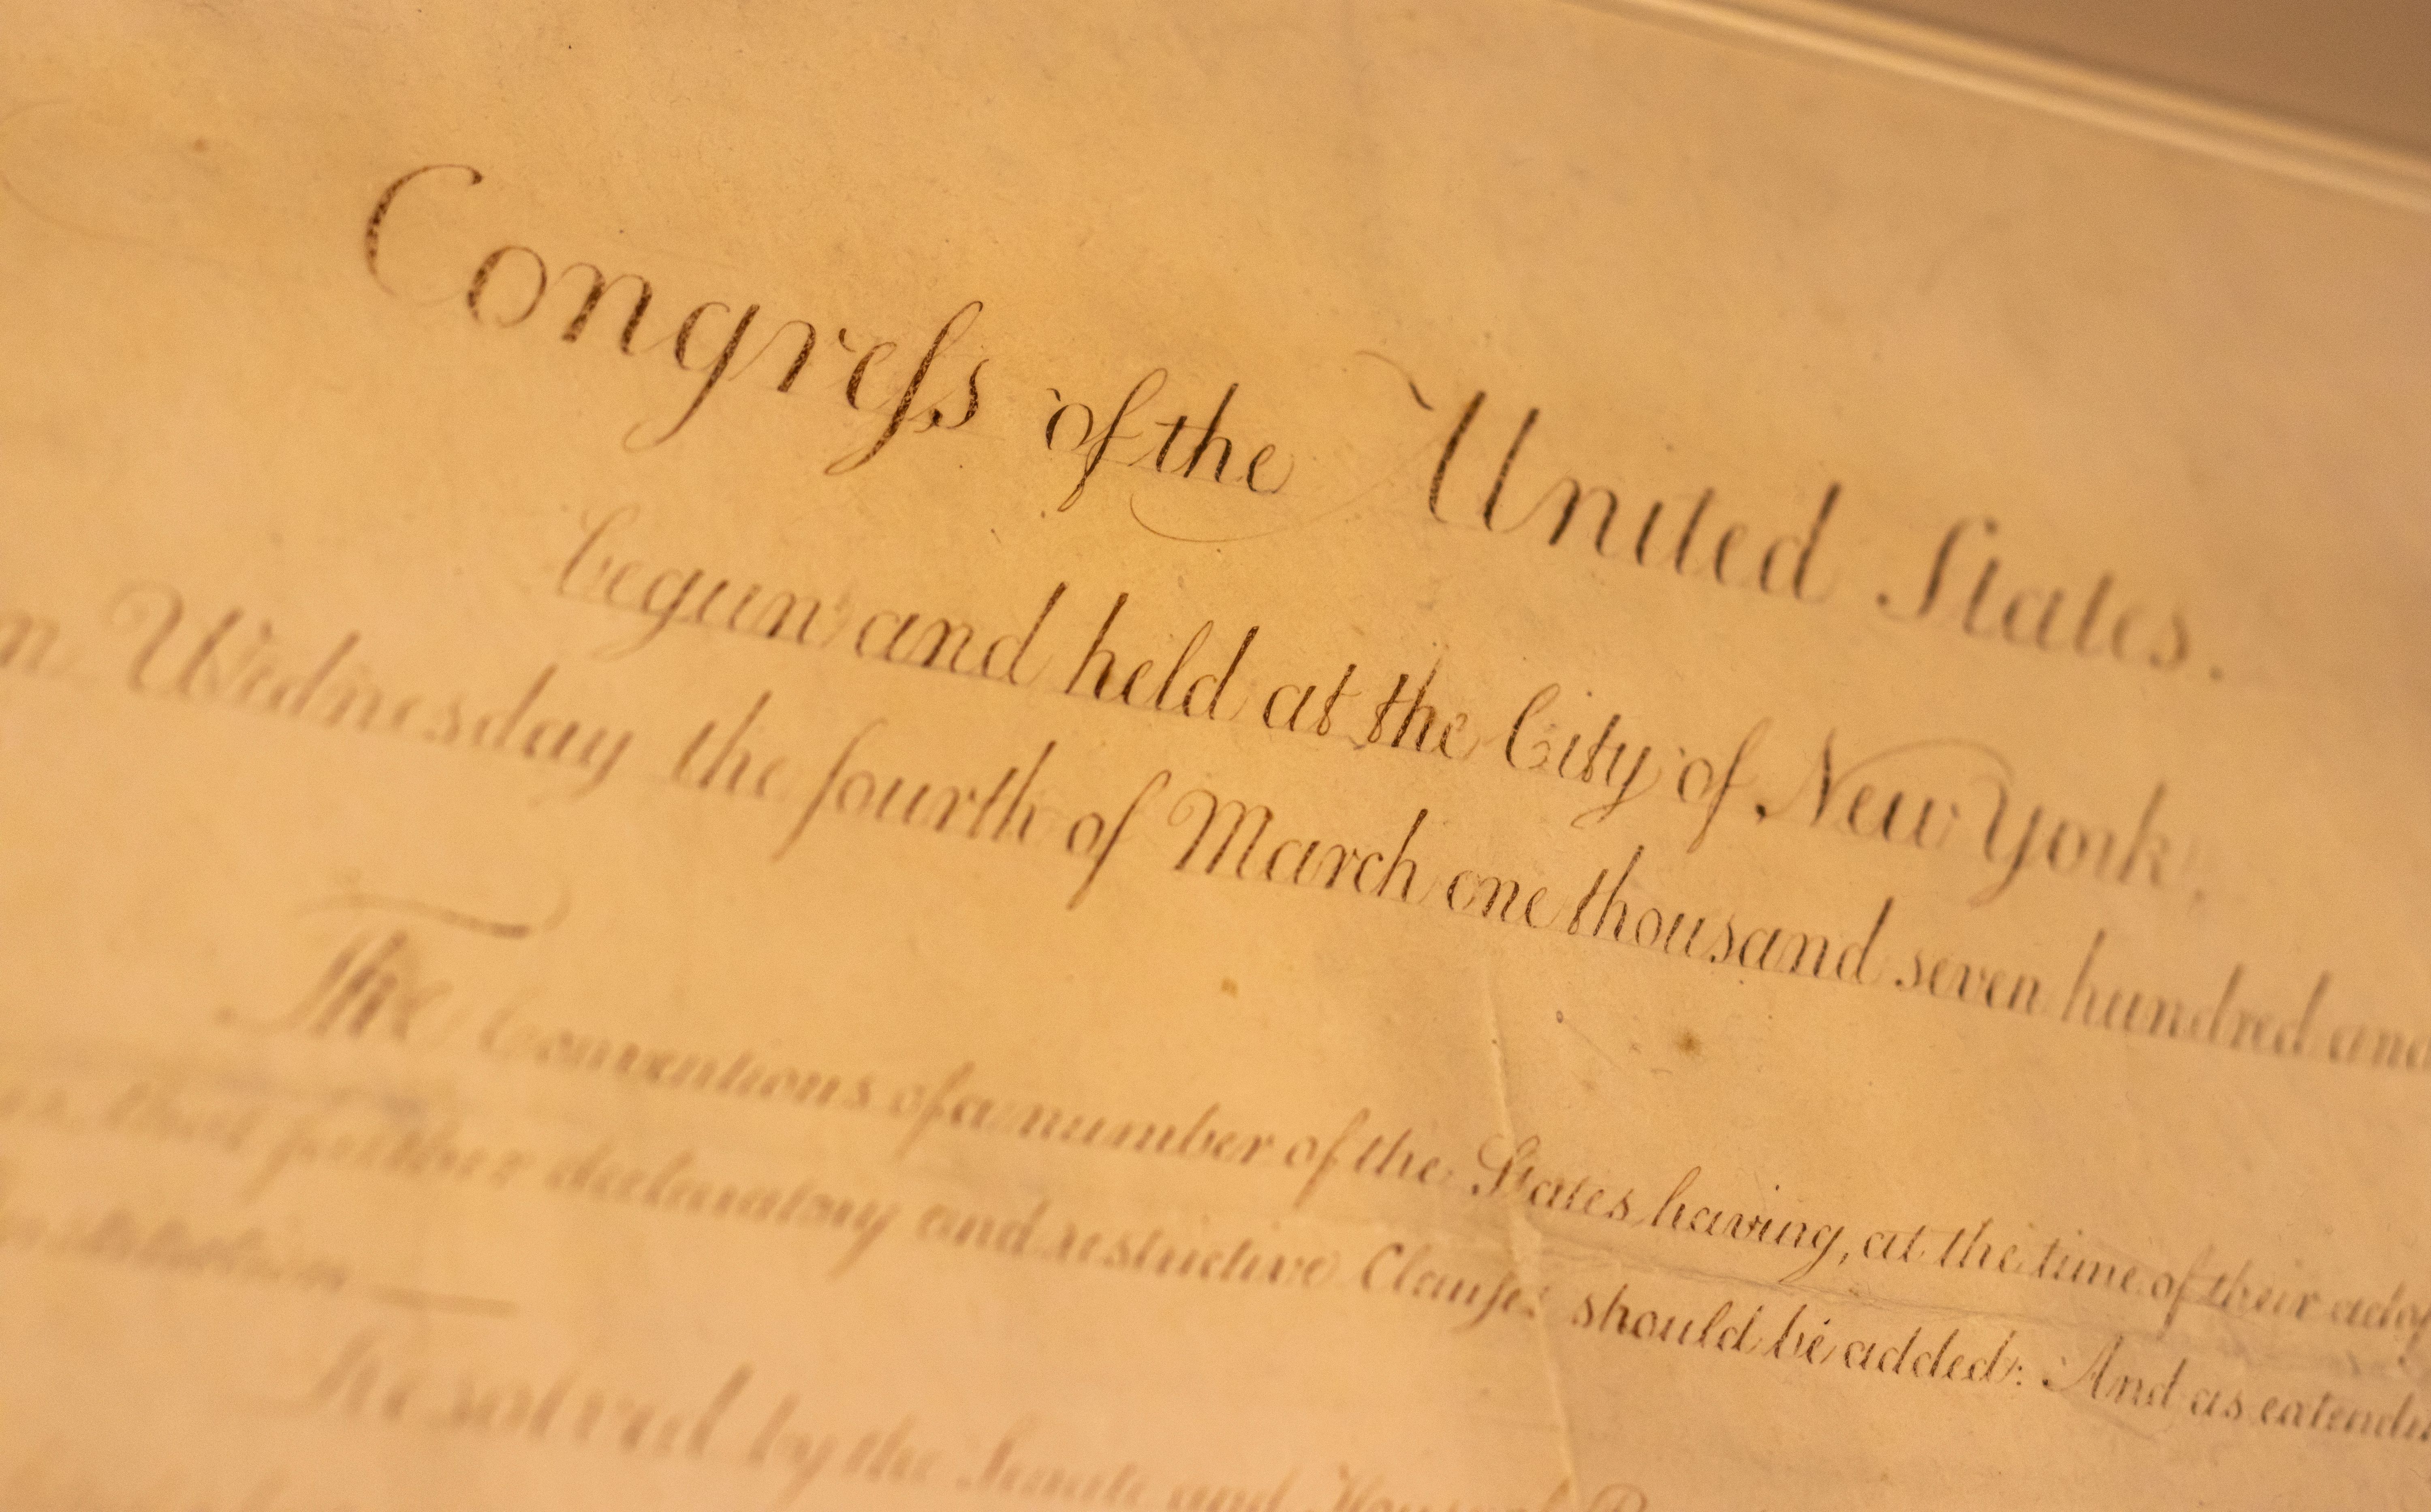 Congreſs of the United States.
begun and held at the City of New York,
Wednesday the fourth of March one thousand seven hundred and
The Conventions of a number of the States having, at the time of their
that further declaratory and restrictive Clauses should be added: And as
Resolved by the Senate and